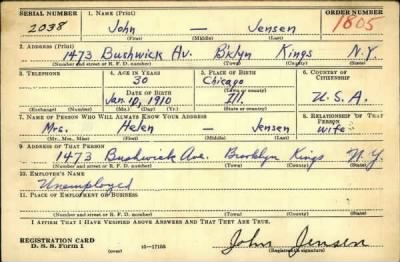 SERIAL NUMBER 1. NAME (Print) ORDER NUMBER
2038 John — Jensen 1605
(First) (Middle) (Last)
2. ADDRESS (Print)
1473 Bushwick Av. Bklyn Kings N.Y.
(Number and street or R. F. D. number) (Town) (County) (State)
3. TELEPHONE 4. AGE IN YEARS 5. PLACE OF BIRTH 6. COUNTRY OF CITIZENSHIP
30 Chicago
DATE OF BIRTH (Town or county)
Jan. 10, 1910 Ill. U.S.A.
(Exchange) (Number) (Mo.) (Day) (Yr.) (State or country)
7. NAME OF PERSON WHO WILL ALWAYS KNOW YOUR ADDRESS 8. RELATIONSHIP OF THAT PERSON
Mrs. Helen — Jensen wife
(Mr., Mrs., Miss) (First) (Middle) (Last)
9. ADDRESS OF THAT PERSON
1473 Bushwick Ave. Brooklyn Kings N.Y.
(Number and street or R. F. D. number) (Town) (County) (State)
10. EMPLOYER'S NAME
Unemployed
11. PLACE OF EMPLOYMENT OR BUSINESS
(Number and street or R. F. D. number) (Town) (County) (State)
I AFFIRM THAT I HAVE VERIFIED ABOVE ANSWERS AND THAT THEY ARE TRUE.
REGISTRATION CARD
D. S. S. Form 1 (over) 16—17105 John Jensen
(Registrant's signature)